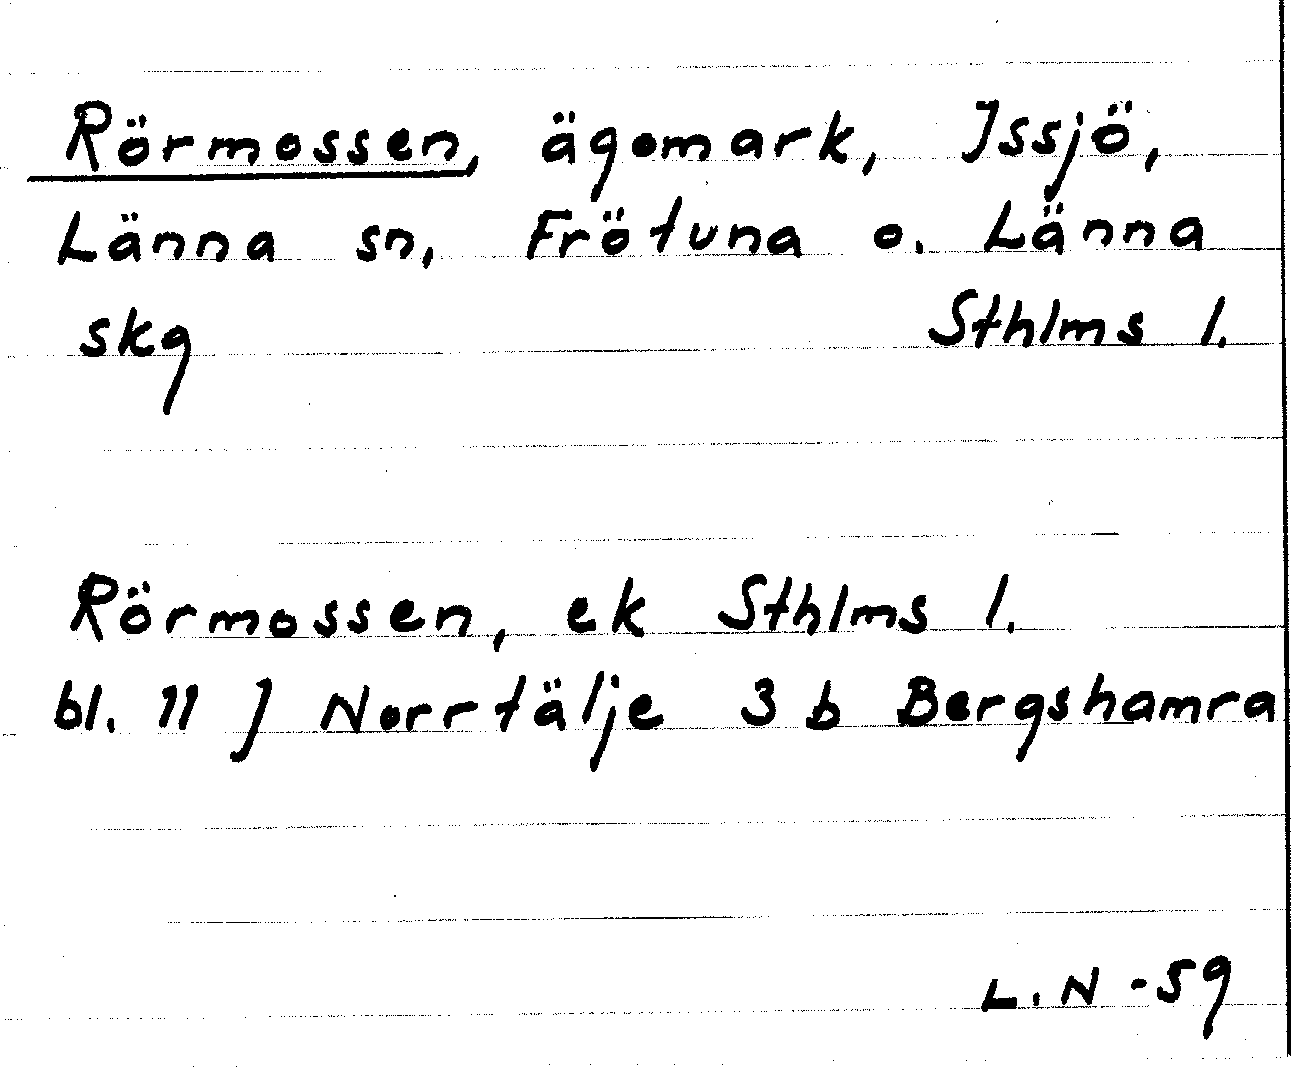 Rörmossen, ägomark, Issjö,
Länna sn, Frötuna o. Länna
skg Sthlms l.
Rörmossen, ek Sthlms l.
bl. 11 J Norrtälje 3 b Bergshamra
L. N - 59